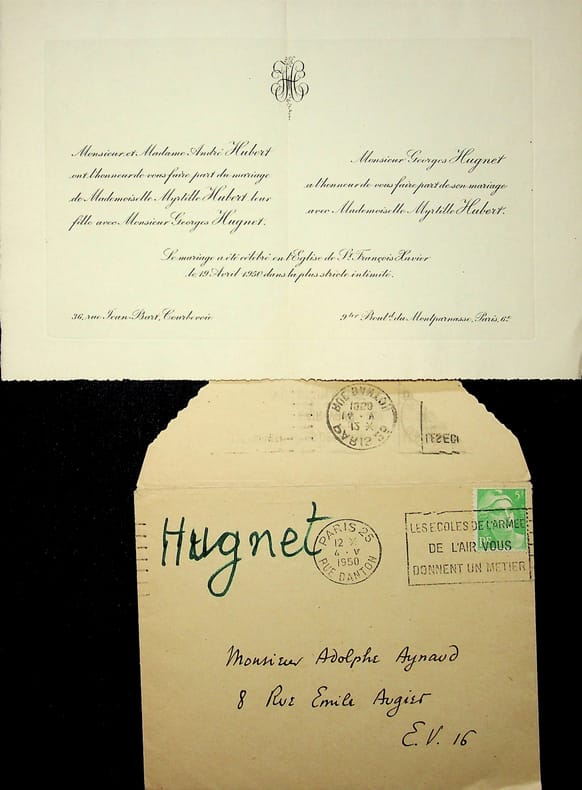 HH
Monsieur et Madame André Hubert
ont l'honneur de vous faire part du mariage
de Mademoiselle Myrtille Hubert leur
fille avec Monsieur Georges Hugnet.
Monsieur Georges Hugnet
a l'honneur de vous faire part de son mariage
avec Mademoiselle Myrtille Hubert.
Le mariage a été célébré en l'Eglise de St. François Xavier
le 19 Avril 1950 dans la plus stricte intimité.
36, rue Jean-Bart, Courbevoie
9ter Bould. du Montparnasse, Paris, 6e.
RUE DANTON
PARIS 25
Hugnet
PARIS 25
12 X
4 - V
1950
RUE DANTON
5F
RF
LES ECOLES DE L'ARMEE
DE L'AIR VOUS
DONNENT UN METIER
Monsieur Adolphe Aynaud
8 Rue Emile Augier
E.V. 16